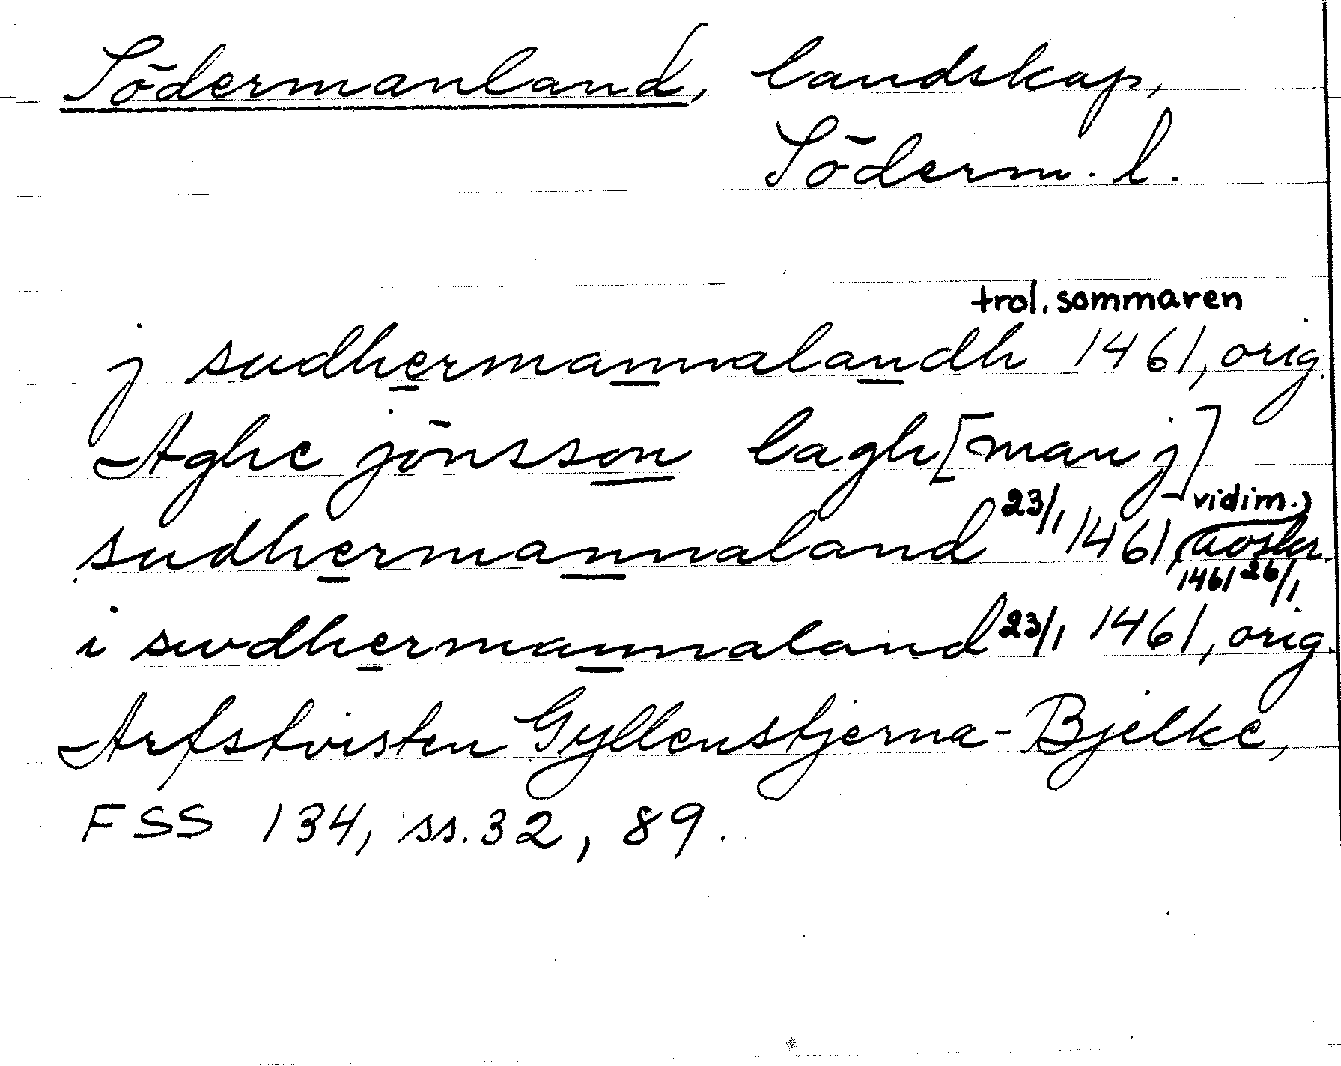 Södermanland, landskap,
Söderm. l.
trol. sommaren
j sudhermannalandh 1461, orig.
Aghe jönsson lagh[man j]
sudhermannaland 23/1 1461, vidim.
1461 26/1
i swdhermannaland 23/1 1461, orig.
Arfstvisten Gyllenstjerna-Bjelke,
FSS 134, ss. 32, 89.